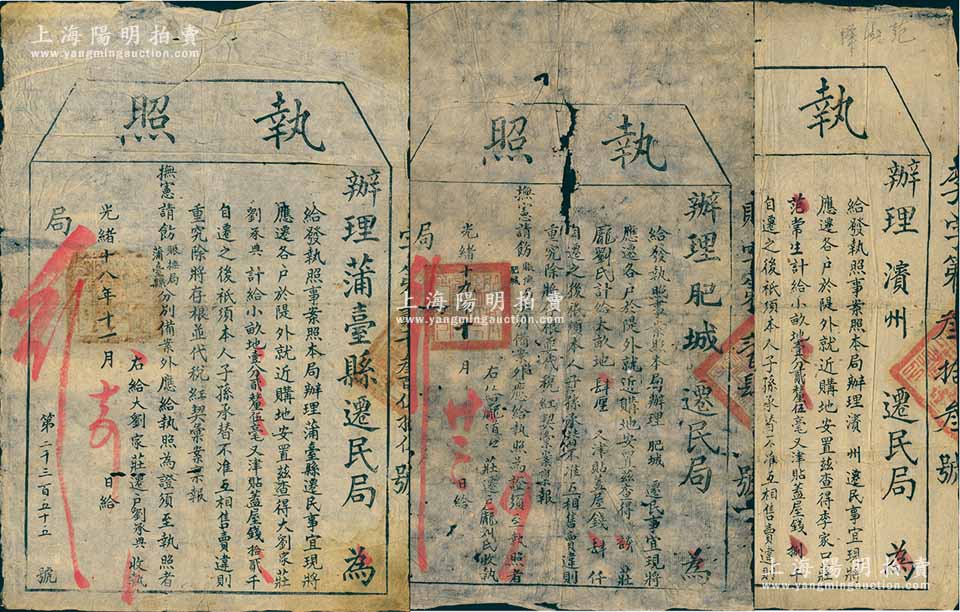 執照
辦理蒲臺縣遷民局 為
給發執照事案照本局辦理蒲臺縣遷民事宜現將
應遷各戶於隄外就近購地安置茲查得大劉家莊
劉承典 計給小畝地壹分貳釐伍毫又津貼蓋屋錢 拾貳千
自遷之後祇須本人子孫承替不准互相售賣違則
重究除將存根並代稅紅契彙案 報
撫憲請飭 賑撫局 蒲臺縣 分別備案外應給執照為證須至執照者
右給大劉家莊遷戶劉承典 收執
光緒十八年十一月 日給
局
第二千三百五十五 號
執照
辦理肥城遷民局 為
給發執照事案照本局辦理 肥城 遷民事宜現將
應遷各戶於隄外就近購地安置茲查得 莊
龐劉氏計給大畝地 肆厘 又津貼蓋屋錢 肆 仟
自遷之後祇須本人子孫承替不准互相售賣違則
重究除將存根並代稅紅契彙案 報
撫憲請飭 分別備案外應給執照為證須至執照者
莊遷戶龐劉氏收執
光緒十九年 月 日給
局
號
執
李字第叁拾叁號
辦理 濱州 遷民局 為
給發執照事案照本局辦理 濱 州 遷民事宜現將
應遷各戶於隄外就近購地安置茲查得李家口莊
范常生計給小畝地壹分貳釐伍毫又津貼蓋屋錢 捌千
自遷之後祇須本人子孫承替不准互相售賣違則
上海陽明拍賣
www.yangmingauction.com
上海陽明拍賣
www.yangmingauction.com
上海陽明拍賣
www.yangmingauction.com
上海陽明拍賣
www.yangmingauction.com
上海陽明拍賣
www.yangmingauction.com
上海陽明拍賣
www.yangmingauction.com